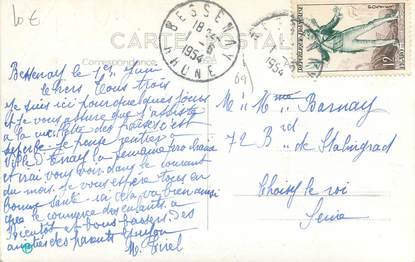 10 €
CARTE POSTALE
Correspondance
BESSENAY
18 H
1 - 6
1954
RHONE
1954
69
REPUBLIQUE FRANÇAISE
12F
POSTES
Bessenay le 1er Juin
Chers Tous trois
Je suis ici pour quelques jours
et je vous assure que j'assiste
à la cueillette des
superbe. Je pense rentrer à
la semaine prochaine
et irai vous voir dans le courant
du mois. Je vous espère tous en
bonne santé si cela va bien ainsi
que le commerce des enfants. à
Bientôt et bons baisers. Des
amitiés des parents
M. et Mme Barnay
72 Bd de Stalingrad
Choisy le roi
Seine